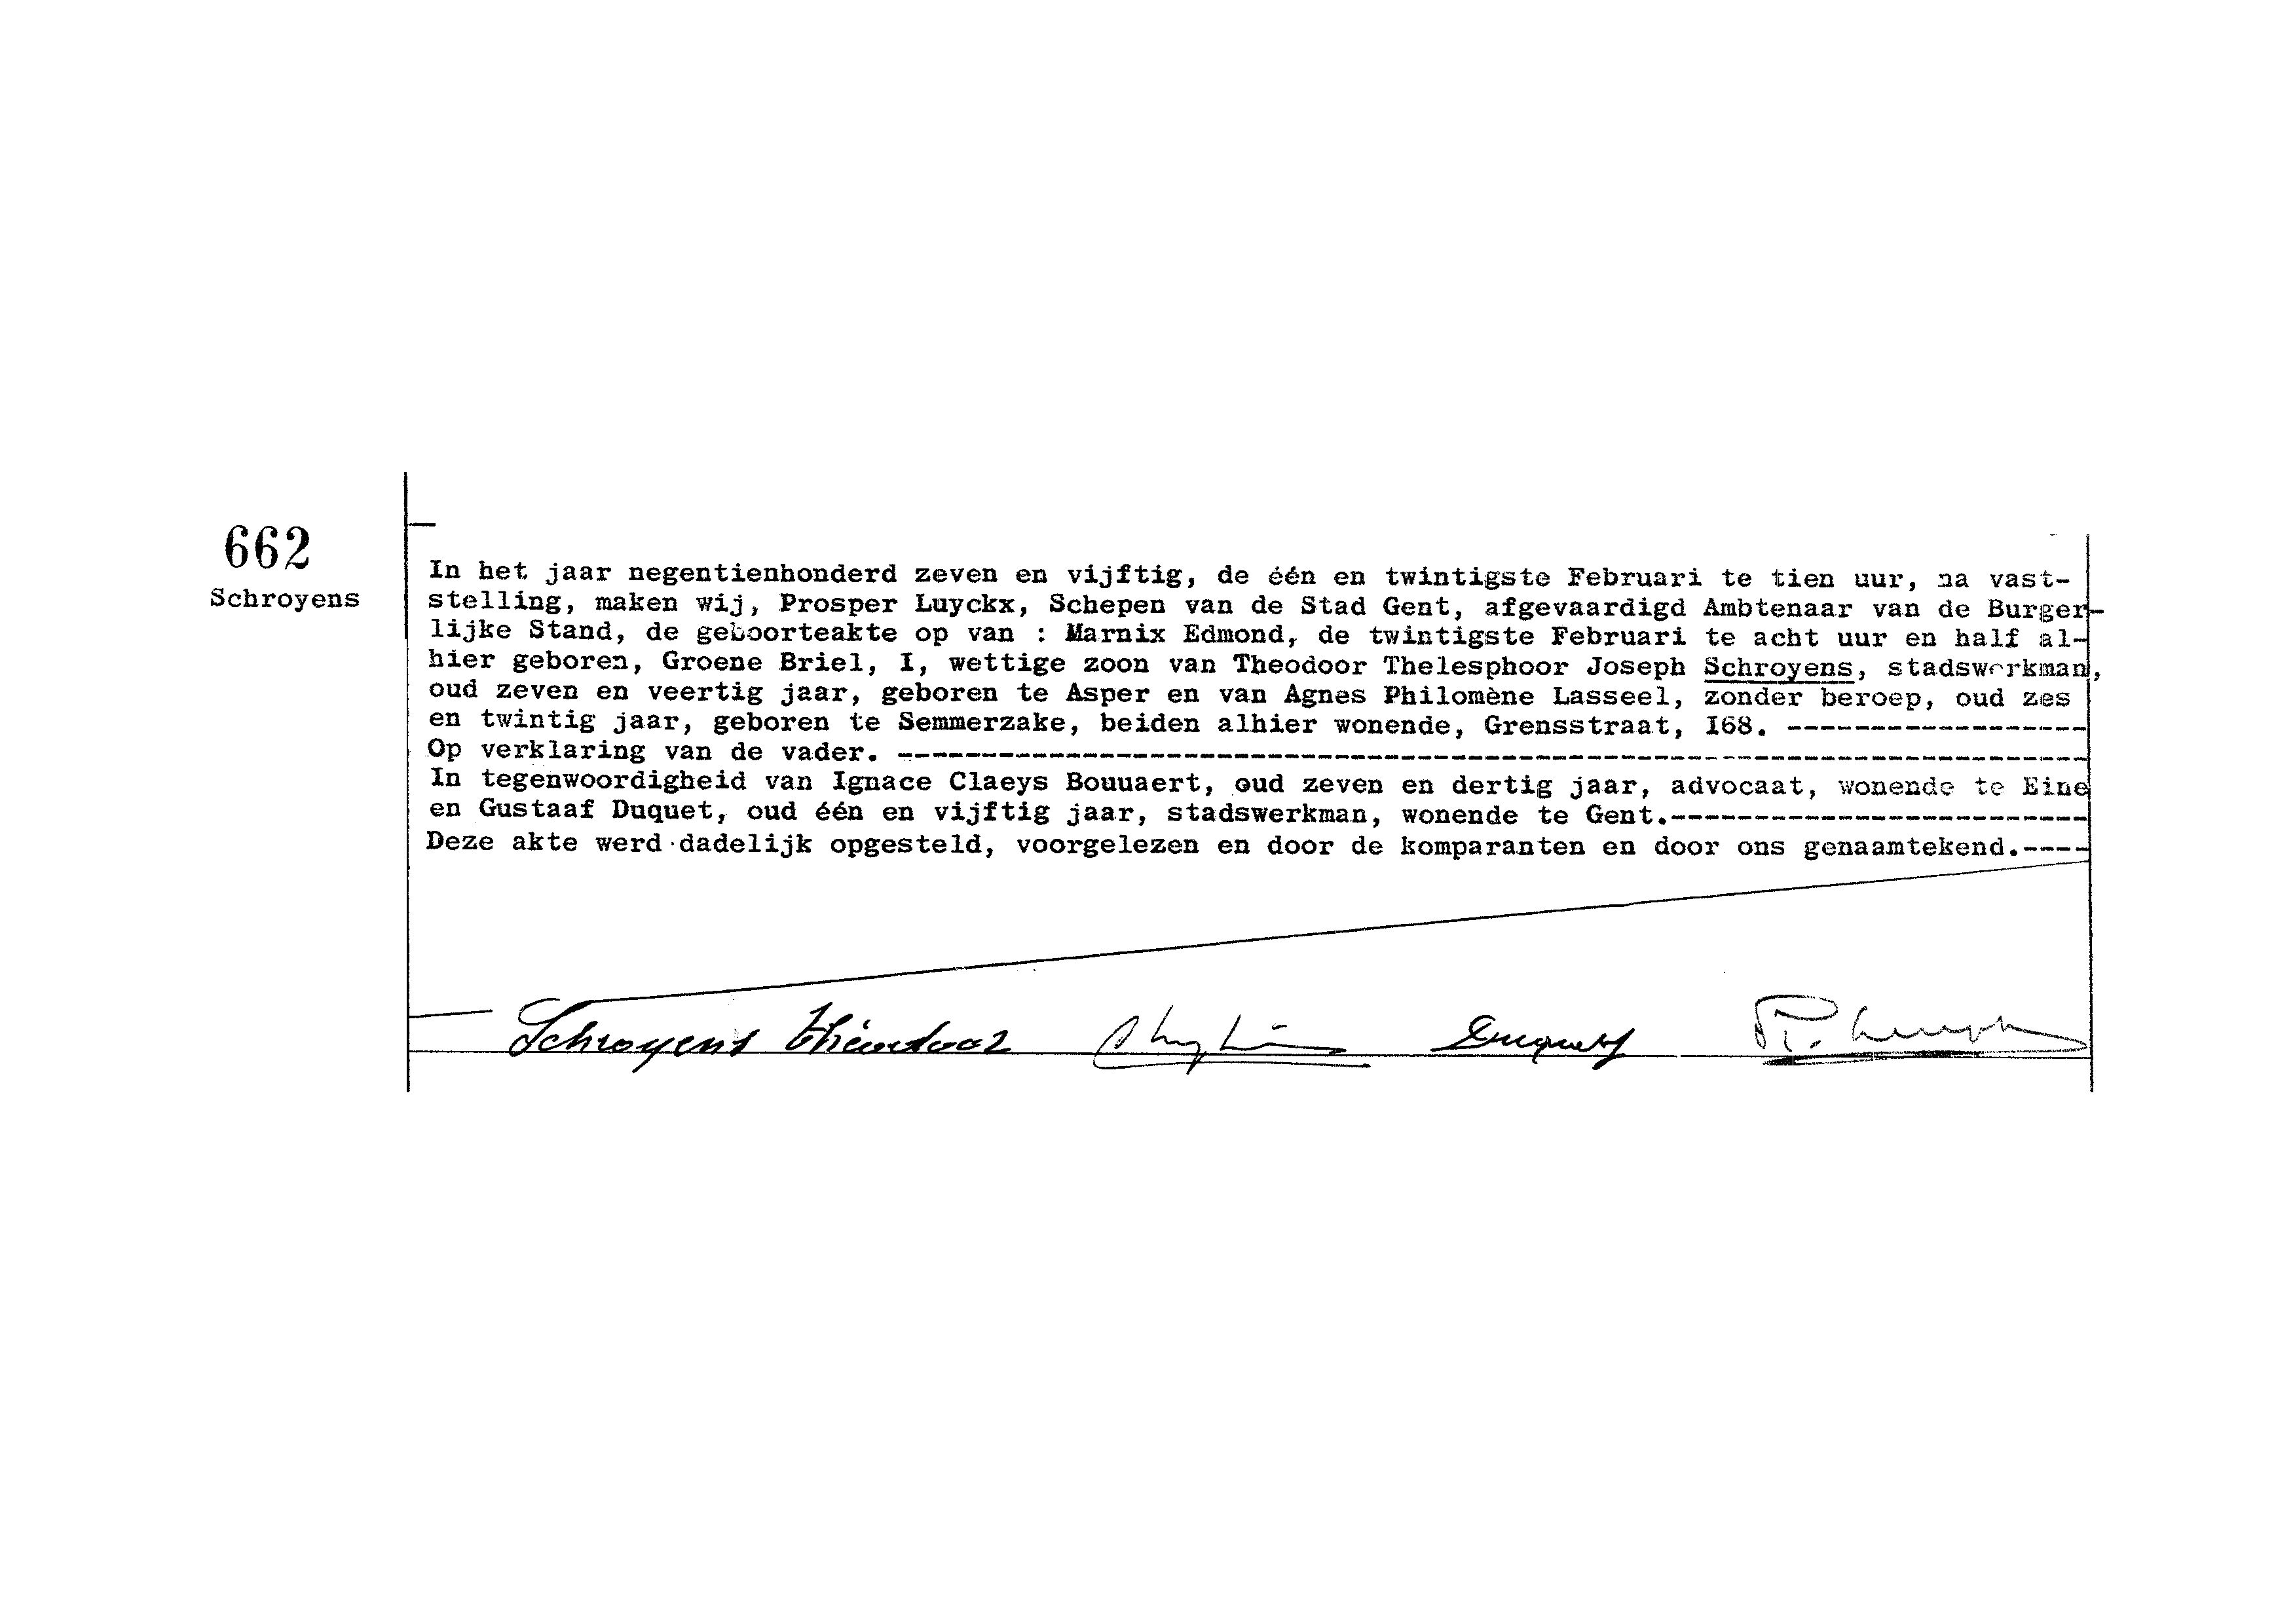 662
Schroyens
In het jaar negentienhonderd zeven en vijftig, de één en twintigste Februari te tien uur, na vast-
stelling, maken wij, Prosper Luyckx, Schepen van de Stad Gent, afgevaardigd Ambtenaar van de Burger-
lijke Stand, de geboorteakte op van : Marnix Edmond, de twintigste Februari te acht uur en half al-
hier geboren, Groene Briel, I, wettige zoon van Theodoor Thelesphoor Joseph Schroyens, stadswerkman,
oud zeven en veertig jaar, geboren te Asper en van Agnes Philomène Lasseel, zonder beroep, oud zes
en twintig jaar, geboren te Semmerzake, beiden alhier wonende, Grensstraat, I68. ------------------
Op verklaring van de vader. -----------------------------------------------------------------------
In tegenwoordigheid van Ignace Claeys Bouuaert, oud zeven en dertig jaar, advocaat, wonende te Eine
en Gustaaf Duquet, oud één en vijftig jaar, stadswerkman, wonende te Gent.-------------------------
Deze akte werd dadelijk opgesteld, voorgelezen en door de komparanten en door ons genaamtekend.----
Schroyens Théodoor Duquet